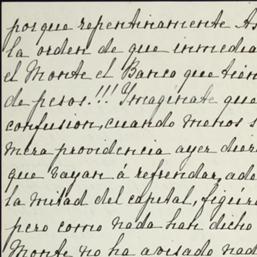 porque repentinamente As
la orden de que inmedia
el Monte el Banco que tien
de pesos.!!! Ymaginate que
confusion, cuando menos s
mera providencia ayer dier
que vayan á refrendar, ade
la mitad del capital, figúre
pero como nada han dicho
Monte no ha avisado nad